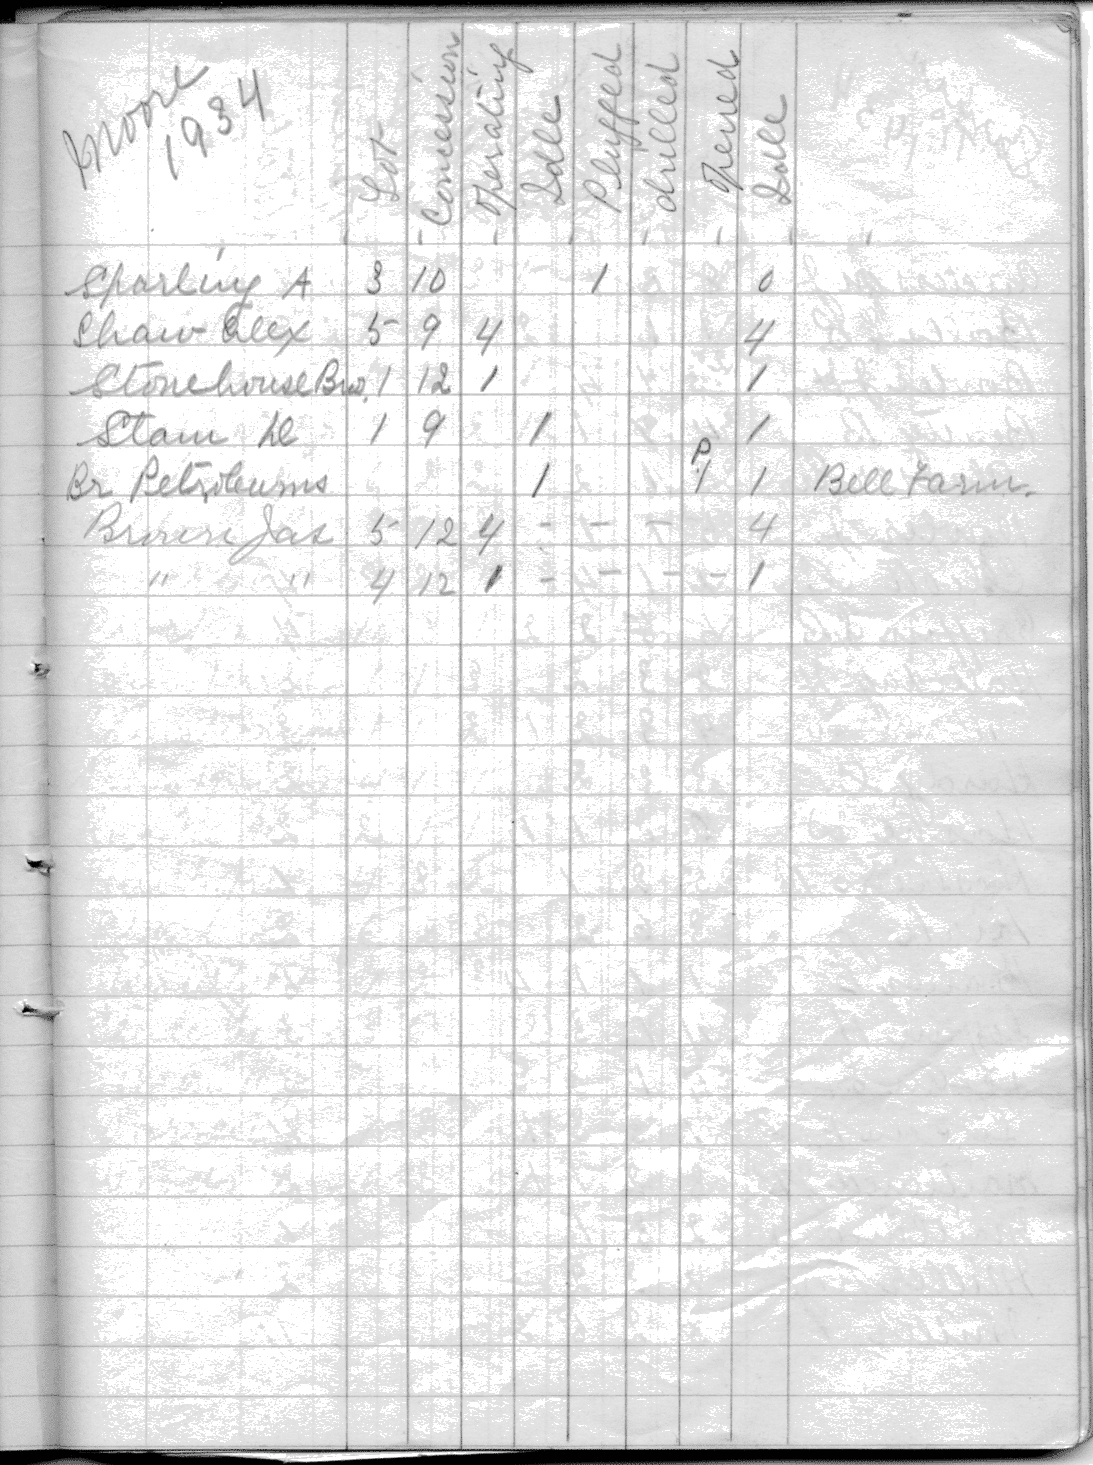 Moore
1934
Lot Concession Operating Idle Plugged drilled opened Idle
Sparling A 3 10 1 0
Shaw Alex 5 9 4 4
Stonehouse Bros. 1 12 1 1
Stam 1 9 1 1
P
Br Petroleums 1 1 1 Bell Farm.
Brown Jas 5 12 4 - - - 4
" " 4 12 1 - - - - 1